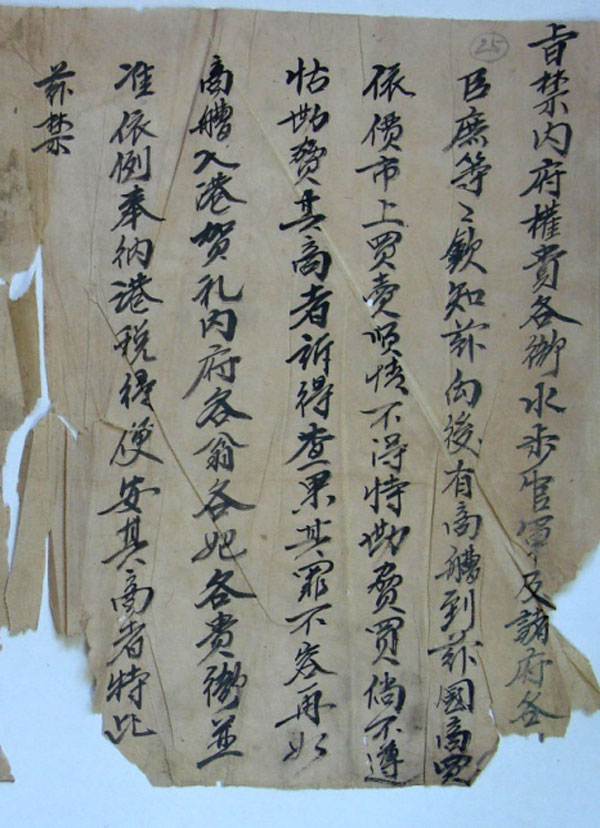 25
旨禁内府權貴各衙水步官軍及諸府各
臣庶等〻欽知茲向後有商艚到茲國商買
依價市上買賣順情不得恃勒賒買倘不遵
怙勒賒其商者訴得查果其罪不容再如
商艚入港賀礼内府各翁各妃各貴衙並
准依例奉納港稅得便安其商者特此
茲禁